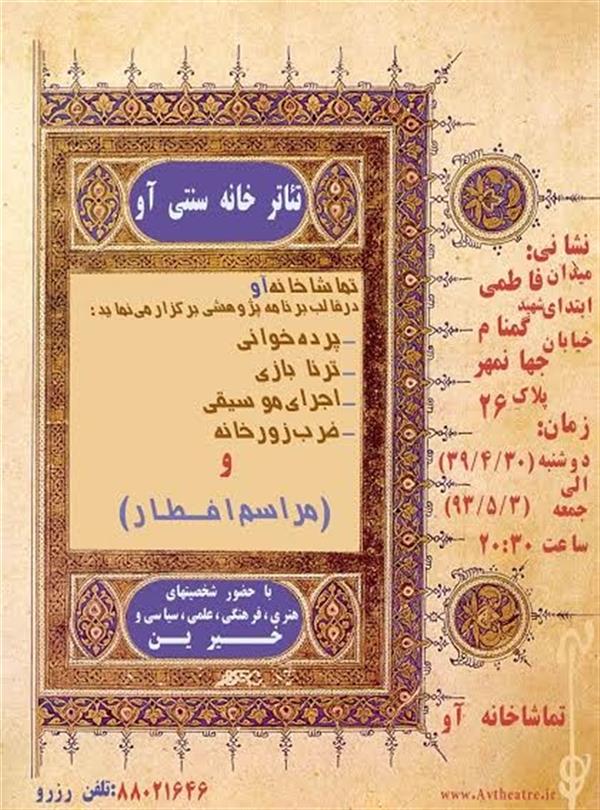 تئاتر خانه سنتی آو
تماشاخانه آو
درقالب برنامه پژوهشی برگزار می‌نماید:
_پرده خوانی
_ترنا بازی
_اجرای موسیقی
_ضرب زورخانه
و
(مراسم افطار)
با حضور شخصیتهای
هنری، فرهنگی، علمی، سیاسی و
خیرین
نشانی:
میدان فاطمی
ابتدای شهید
گمنام
خیابان
جهانمهر
پلاک ۲۶
زمان:
دوشنبه (۳۹/۴/۳۰)
الی
جمعه (۹۳/۵/۳)
ساعت ۲۰:۳۰
تماشاخانه آو
تلفن رزرو:۸۸۰۲۱۶۴۶
www.Avtheatre.ir